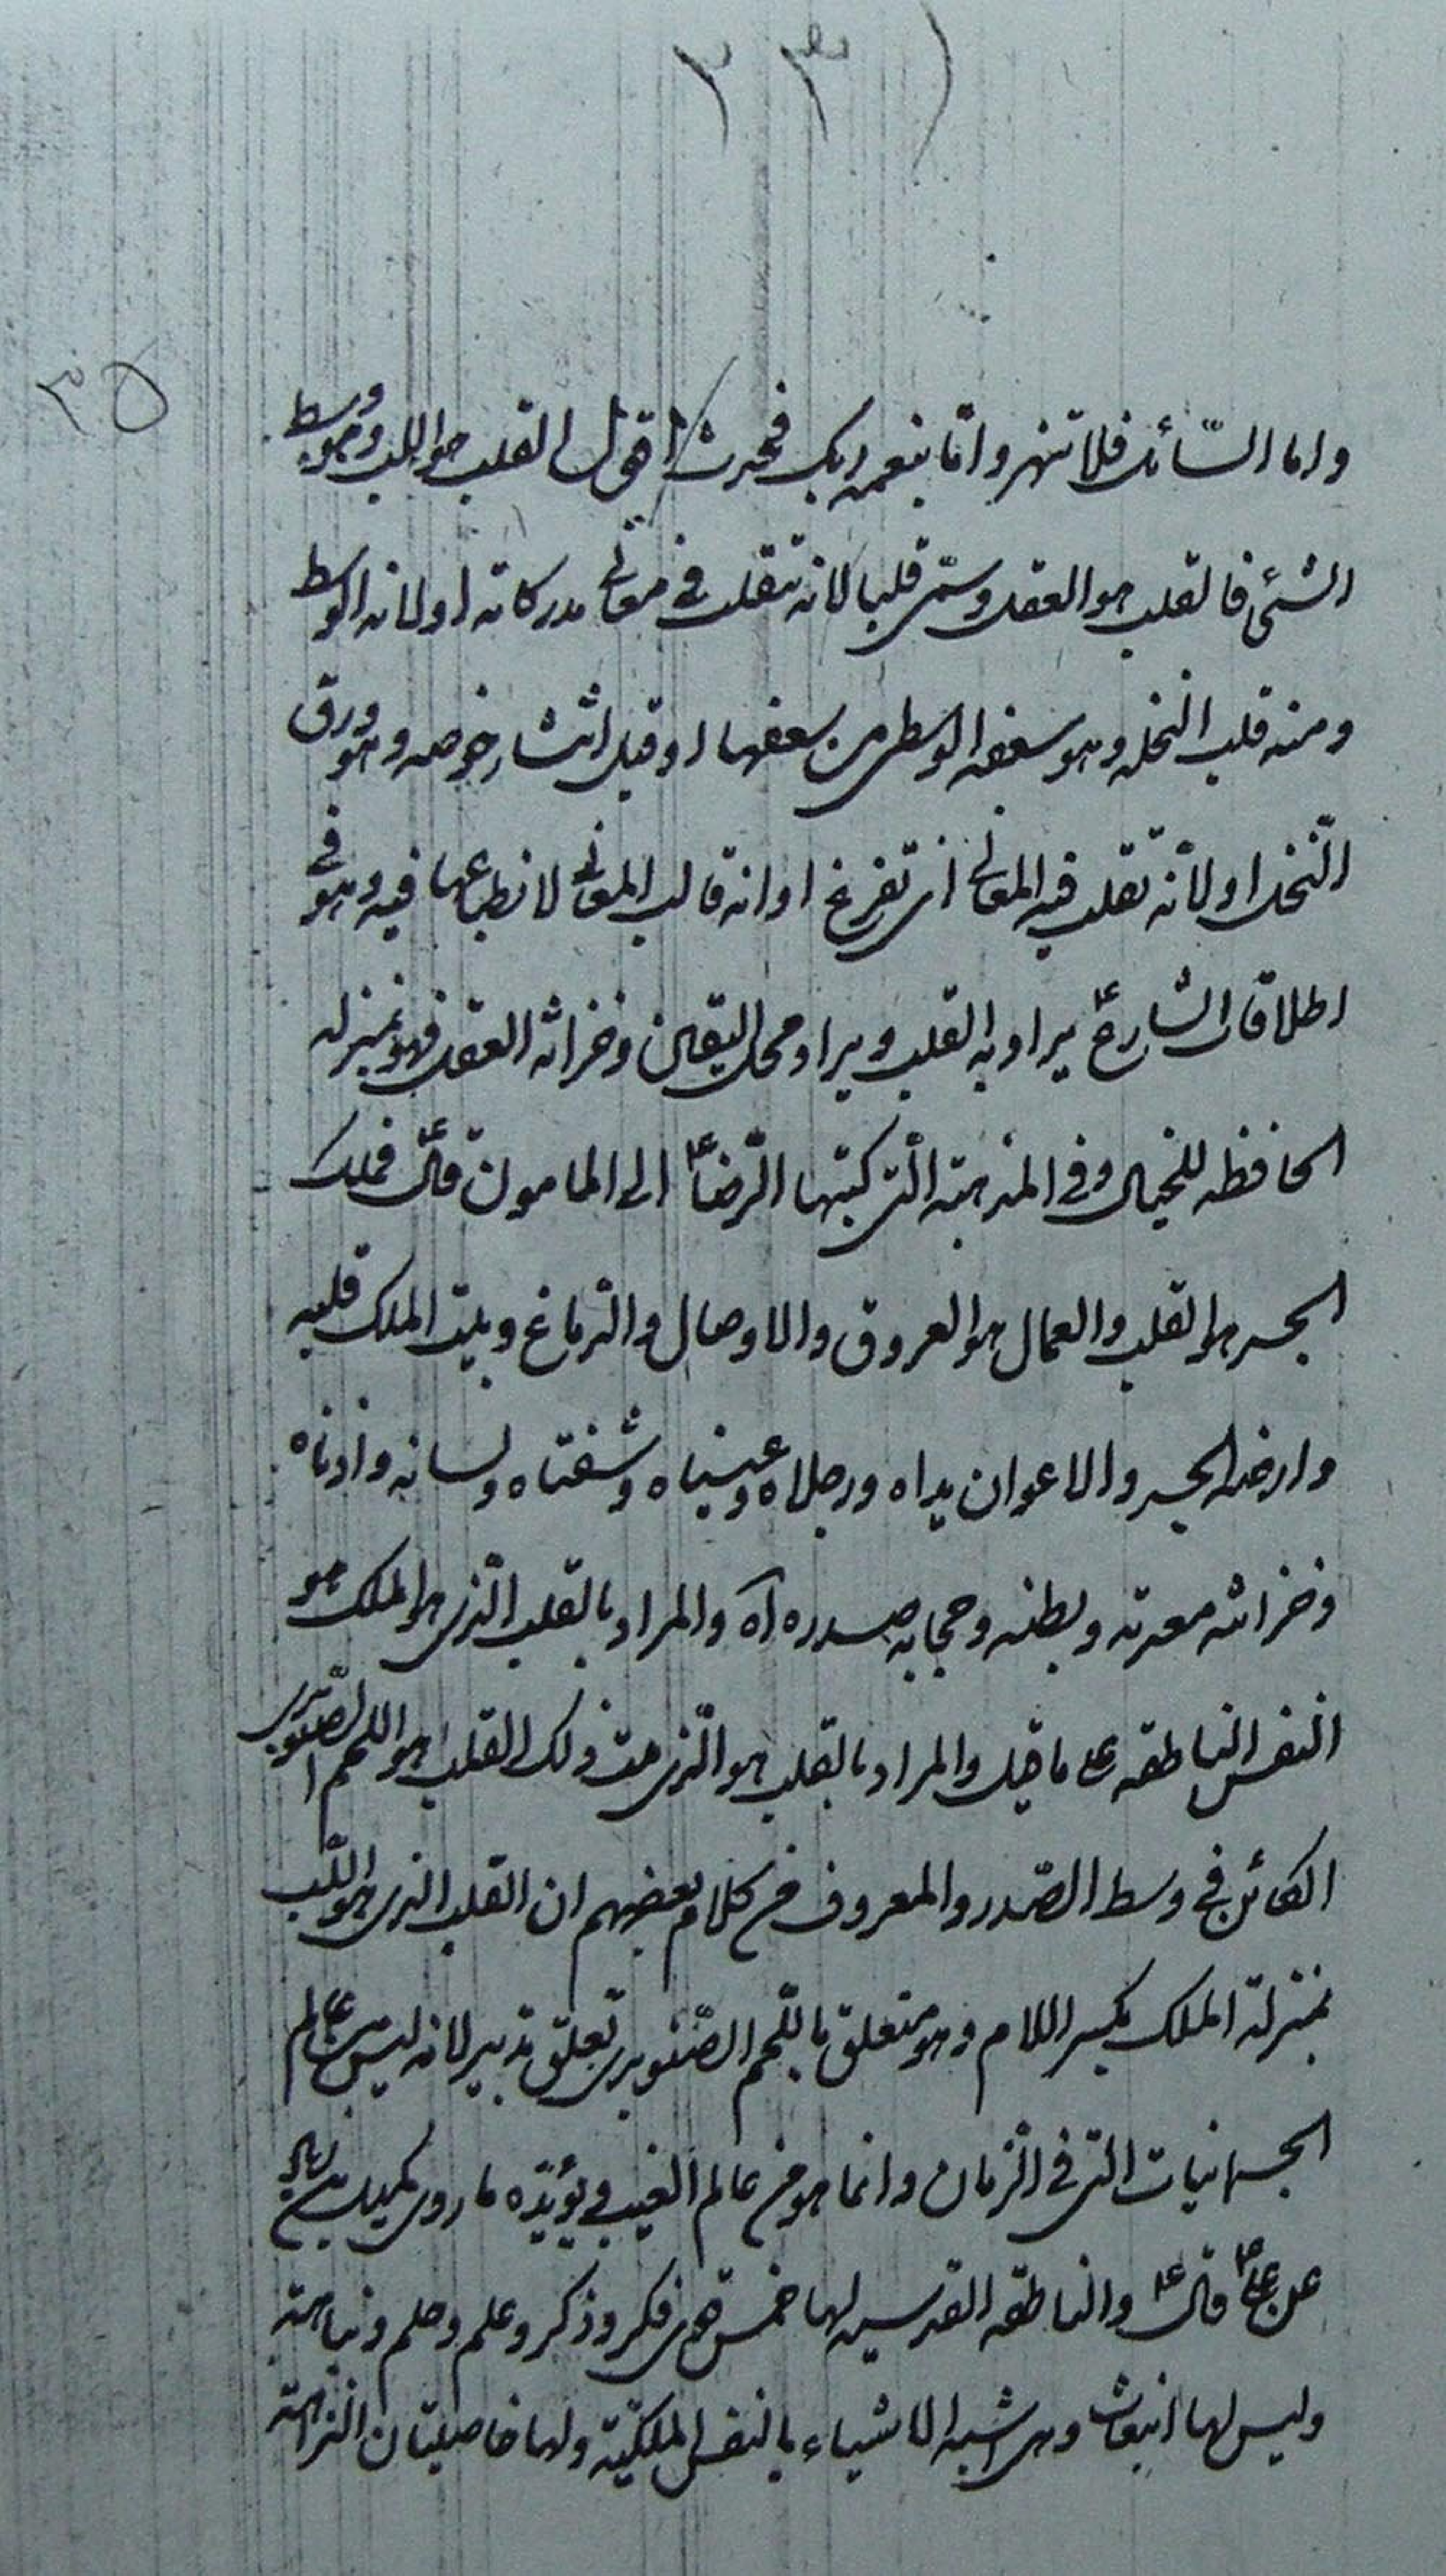 ٢٣١
٢٥
واما السّائل فلا تنهر وامّا بنعمه ربك فحدث اقول القلب هو اللب وهو وسط
الشئ فالقلب هو العقل وسمّى قلبا لانه تتقلب فى معانى مدركاته او لانه الوسط
ومنه قلب النخله وهو سعفه الوسطى من سعفها او قبل انتشار خوصه وهو ورق
النّخل او لانّه تقلب فيه المعانى اى تفرغ او انه قالب المعانى لانطباعها فيه وهو فى
اطلاقات الشارع ع يراد به القلب ويراد محل اليقين وخزانه العقل فهو بمنزله
الحافظه للخيال وفى المذهبته الّتى كتبها الرّضا ع الى المامون قال ع فملك
الجسد هو القلب والعمال هو العروق والاوصال والدّماغ وبيت الملك قلبه
وارضه الجسد والاعوان يداه ورجلاه وعيناه وشفتاه ولسانه واذناه
وخزانته معدته وبطنه وحجابه صدره اه والمراد بالقلب الّذى هو الملك هو
النفس الناطقه على ما قيل والمراد بالقلب هو الّذى بيت ذلك القلب هو اللحم الصّنوبرى
الكائن فى وسط الصّدر والمعروف من كلام بعضهم ان القلب الذى هو اللّب
بمنزلة الملك بكسر اللام وهو متعلق باللّحم الصّنوبرى تعلق تدبير لانه ليس من عالم
الجسمانيات التى فى الزمان وانما هو من عالم الغيب ويؤيّده ما روى كميل بن زياد
عن على ع قال ع والناطقه القدسيه لها خمس قوى فكر وذكر وعلم وحلم ونباهة
وليس لها انبعاث وهى اشبه الاشياء بالنفس الملكيّة ولها خاصيتان النزاهة